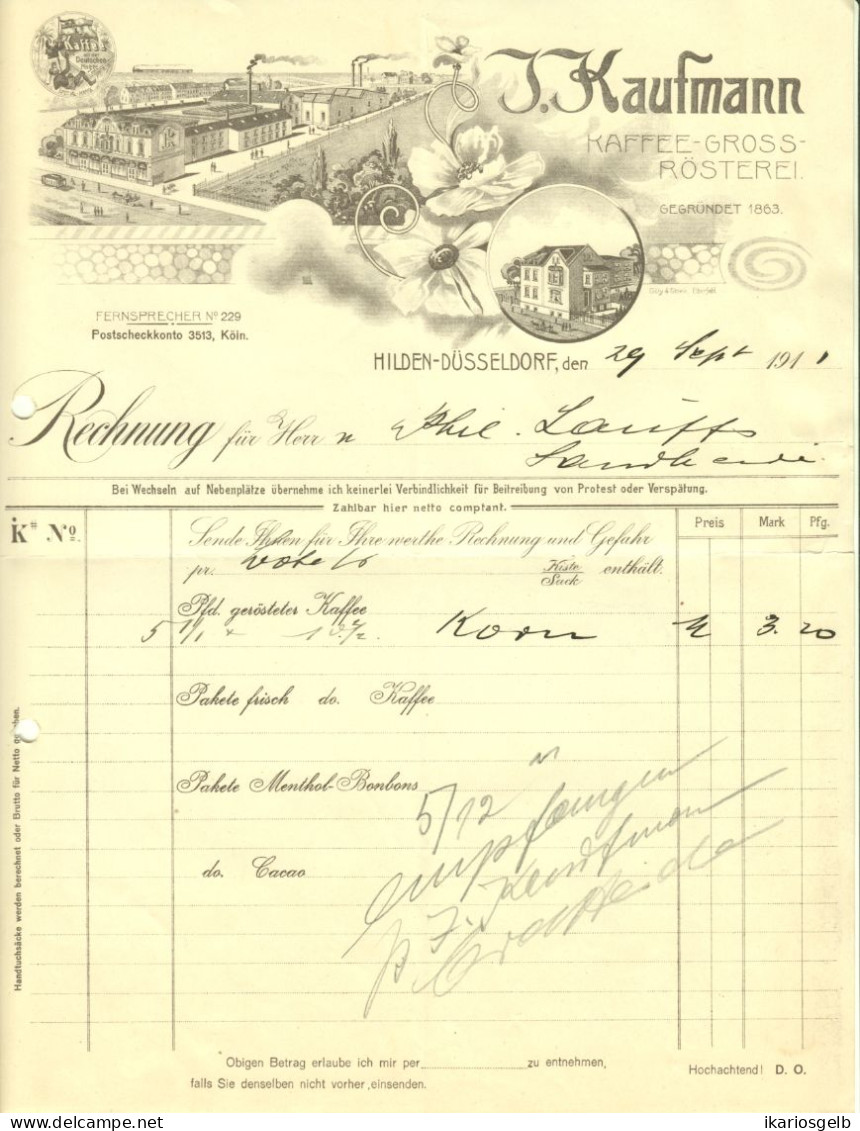 Kaffee
Deutschen
J. Kaufmann
KAFFEE-GROSS-
RÖSTEREI.
GEGRÜNDET 1863.
FERNSPRECHER No 229
Postscheckkonto 3513, Köln.
HILDEN-DÜSSELDORF, den 29 Sept 1911
Rechnung für Herrn Phil. Lauffs
Bei Wechseln auf Nebenplätze übernehme ich keinerlei Verbindlichkeit für Beitreibung von Protest oder Verspätung.
Zahlbar hier netto comptant.
K No. Preis Mark Pfg.
Sende Ihnen für Ihre werthe Rechnung und Gefahr
pr. Kiste/Sack enthält.
Pfd. gerösteter Kaffee
5 1/1 Korn 3.20
Pakete frisch do. Kaffee
Pakete Menthol-Bonbons
5/12
empfangen
do. Cacao
J. Kaufmann
Handtuchsäcke werden berechnet oder Brutto für Netto
Obigen Betrag erlaube ich mir per zu entnehmen,
falls Sie denselben nicht vorher einsenden.
Hochachtend! D. O.
ikariosgelb